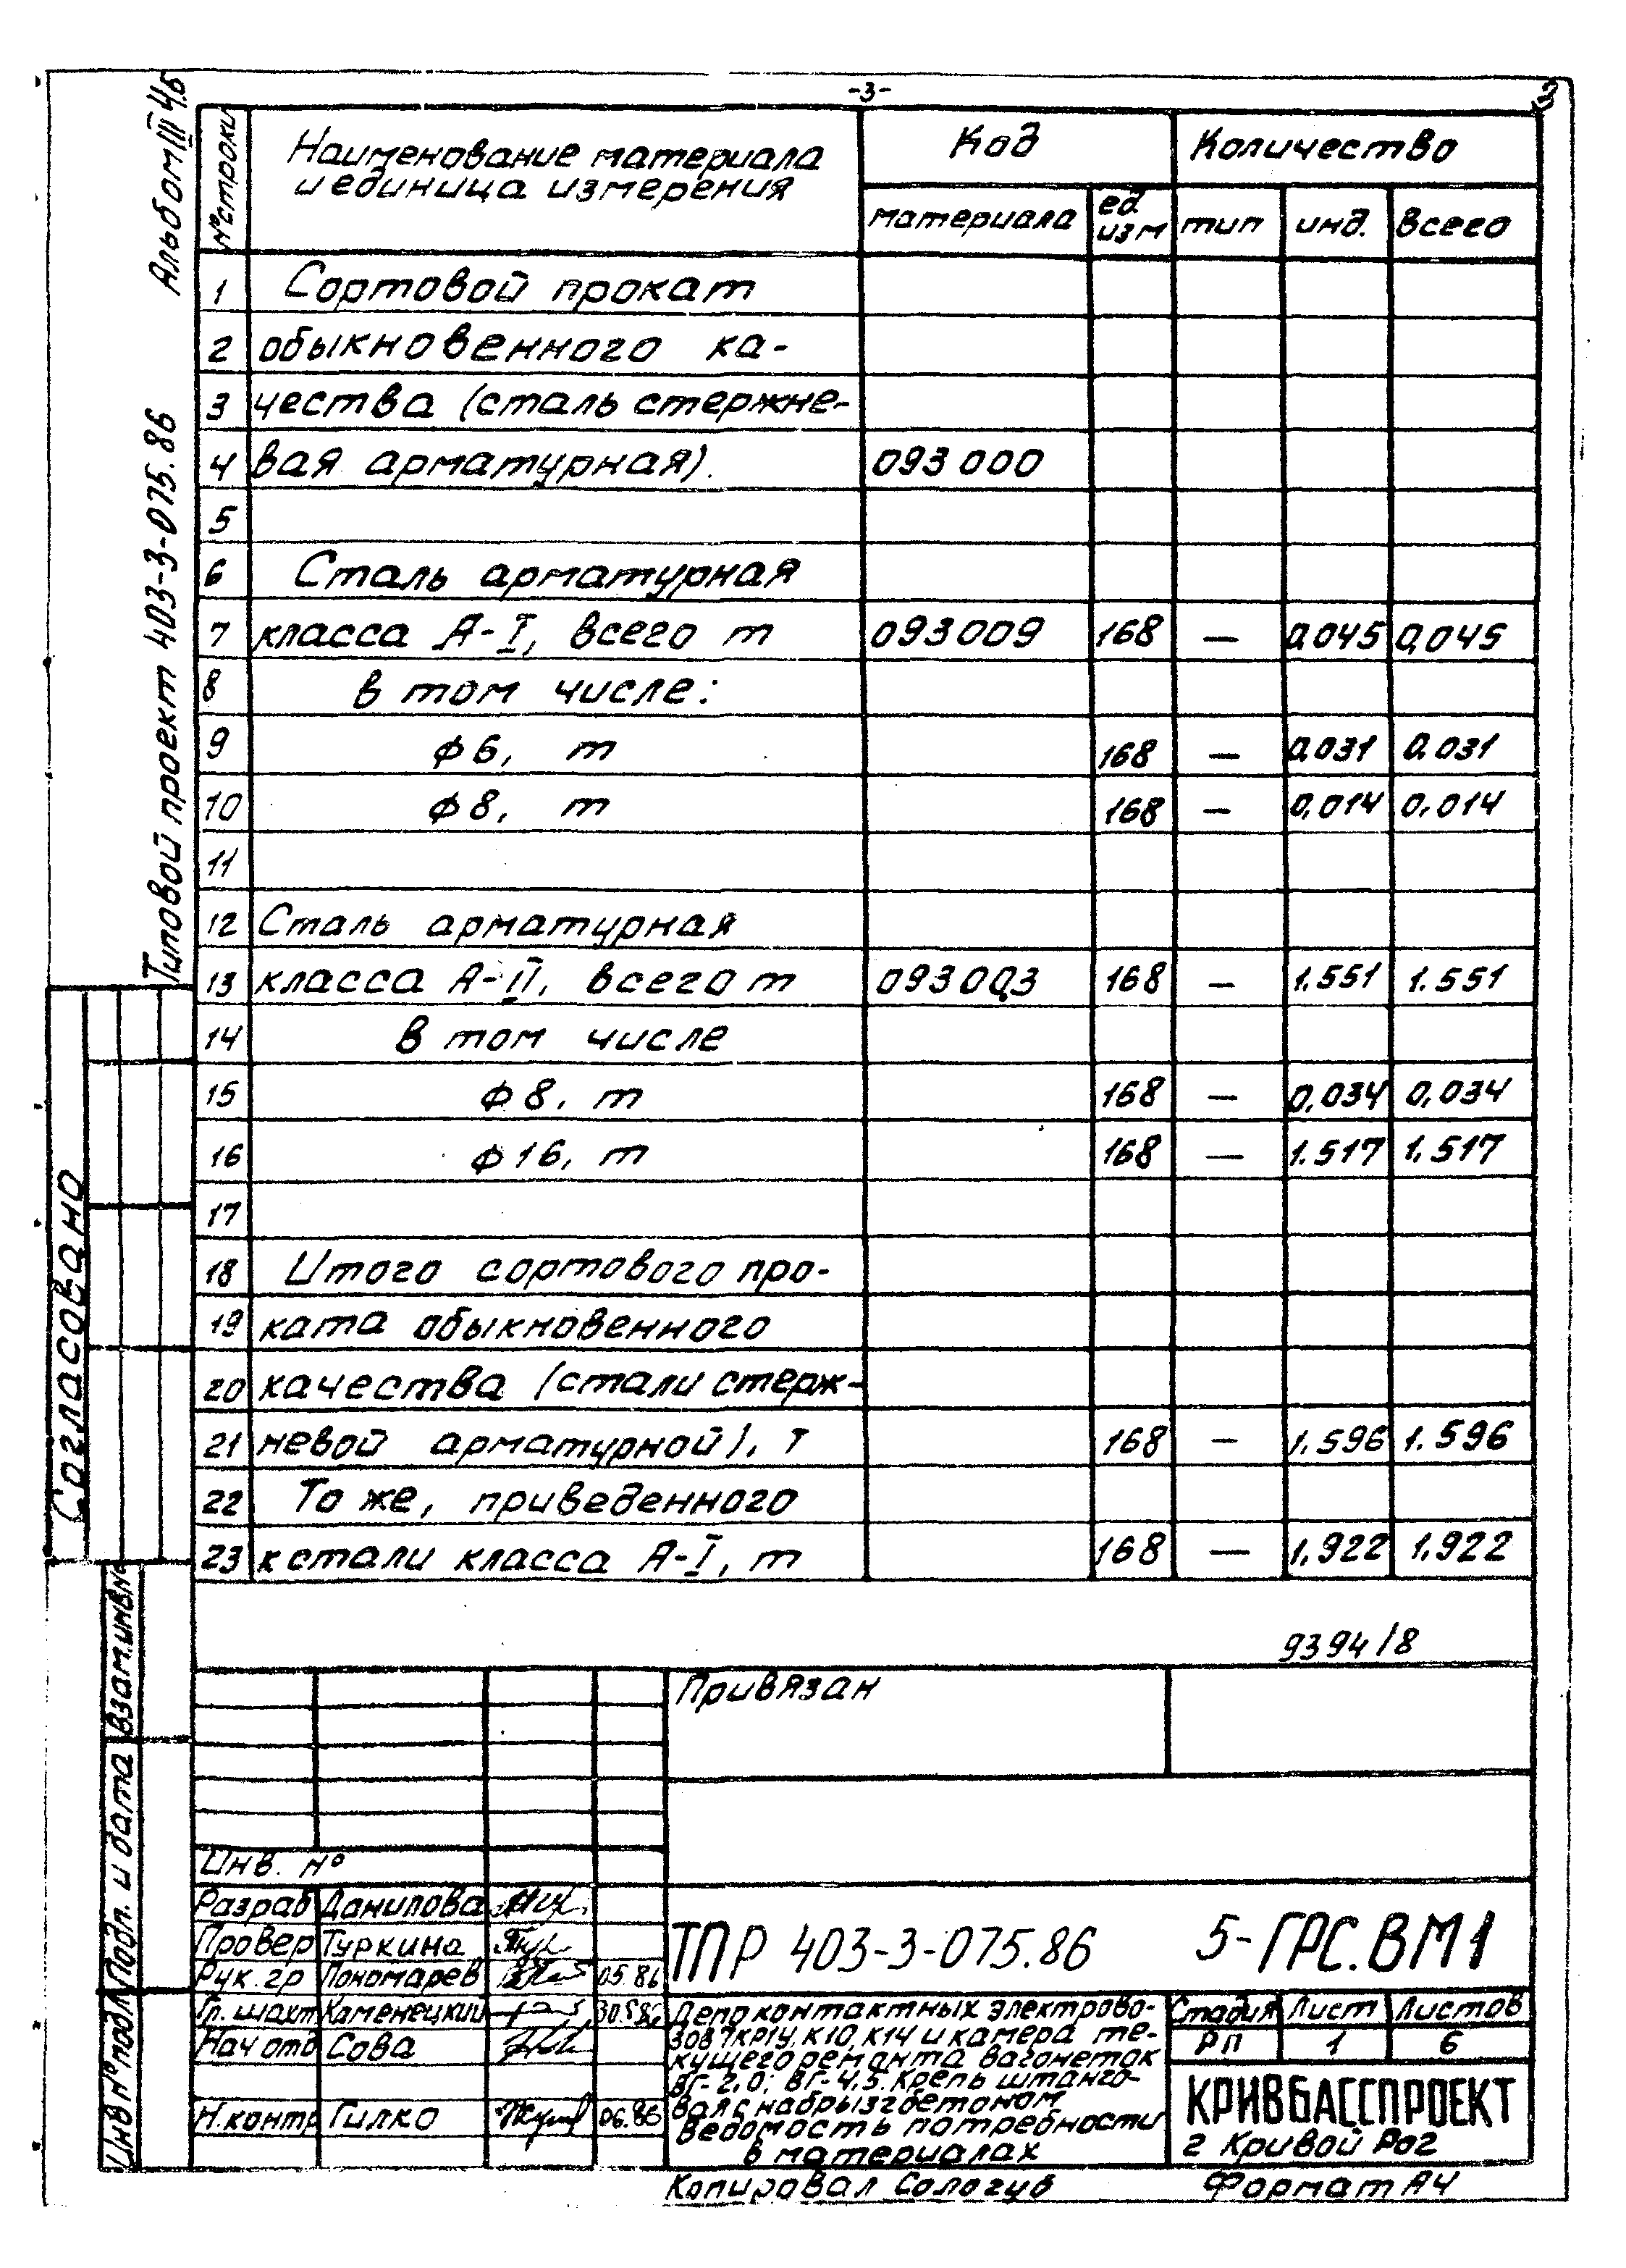 -3-
3
Альбом III ч.6
Типовой проект 403-3-075.86
№ строки
Наименование материала
и единица измерения
Код
Количество
материала
ед.
изм
тип
инд.
всего
1 Сортовой прокат
2 обыкновенного ка-
3 чества (сталь стержне-
4 вая арматурная). 093 000
5
6 Сталь арматурная
7 класса А-I, всего т 093009 168 — 0,045 0,045
8 в том числе:
9 ф6, т 168 — 0,031 0,031
10 ф8, т 168 — 0,014 0,014
11
12 Сталь арматурная
13 класса А-II, всего т 093003 168 — 1.551 1.551
14 в том числе
15 ф8, т 168 — 0,034 0,034
16 ф16, т 168 — 1.517 1.517
17
18 Итого сортового про-
19 ката обыкновенного
20 качества (стали стерж-
21 невой арматурной), т 168 — 1.596 1.596
22 То же, приведенного
23 к стали класса А-I, т 168 — 1,922 1,922
Согласовано
Взам.инв.№
Подп. и дата
Инв № подл
9394/8
Привязан
Инв. №
Разраб Данилова
Провер Туркина
Рук. гр Пономарев 05.86
Гл. шахт Каменецкий
Нач отд Сова
Н.контр Гилко 06.86
ТПР 403-3-075.86 5-ГРС.ВМ1
Депо контактных электрово-
зов 7КР1У, К10, К14 и камера те-
кущего ремонта вагонеток
ВГ-2,0; ВГ-4,5. Крепь штанго-
вая с набрызгбетоном
Ведомость потребности
в материалах
Стадия Лист Листов
РП 1 6
КРИВБАССПРОЕКТ
г Кривой Рог
Копировал Сологуб
Формат А4